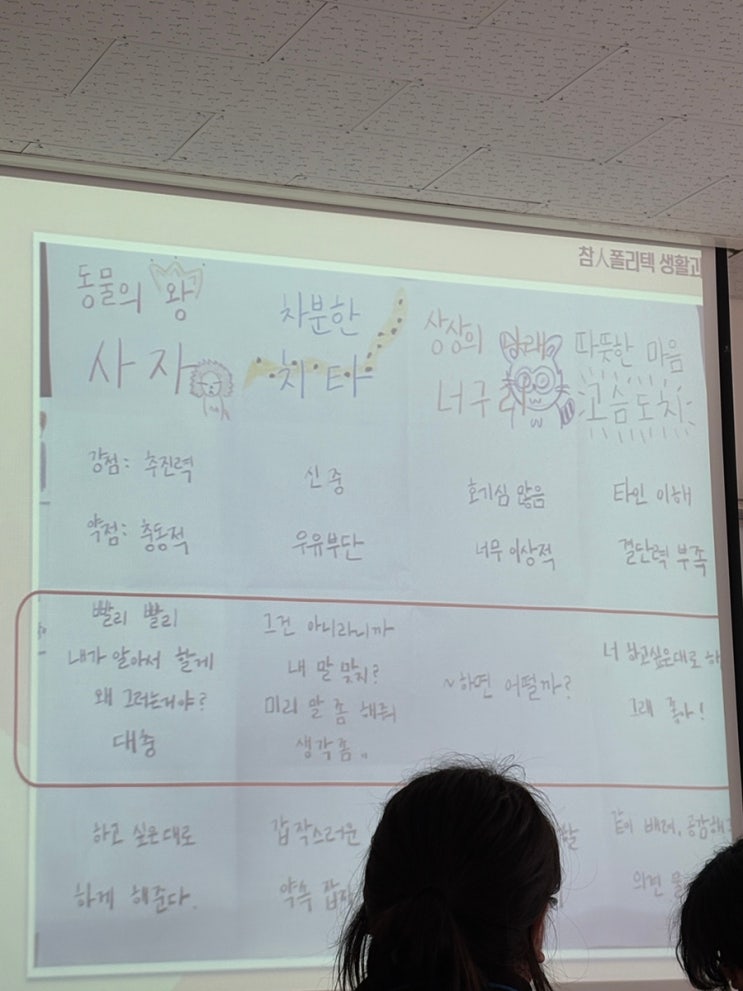 참人폴리텍 생활
동물의 왕
사자
차분한
치타
상상의
너구리
따뜻한 마음
고슴도치
강점: 추진력
신중
호기심 많음
타인 이해
약점: 충동적
우유부단
너무 이상적
결단력 부족
빨리 빨리
내가 알아서 할게
왜 그러는거야?
대충
그건 아니라니까
내 말 맞지?
미리 말 좀 해줘
생각좀..
~하면 어떨까?
너 하고싶은대로 하
그래 좋아!
하고 싶은대로
하게 해준다.
갑작스러운
약속
같이 배려, 공감해
의견